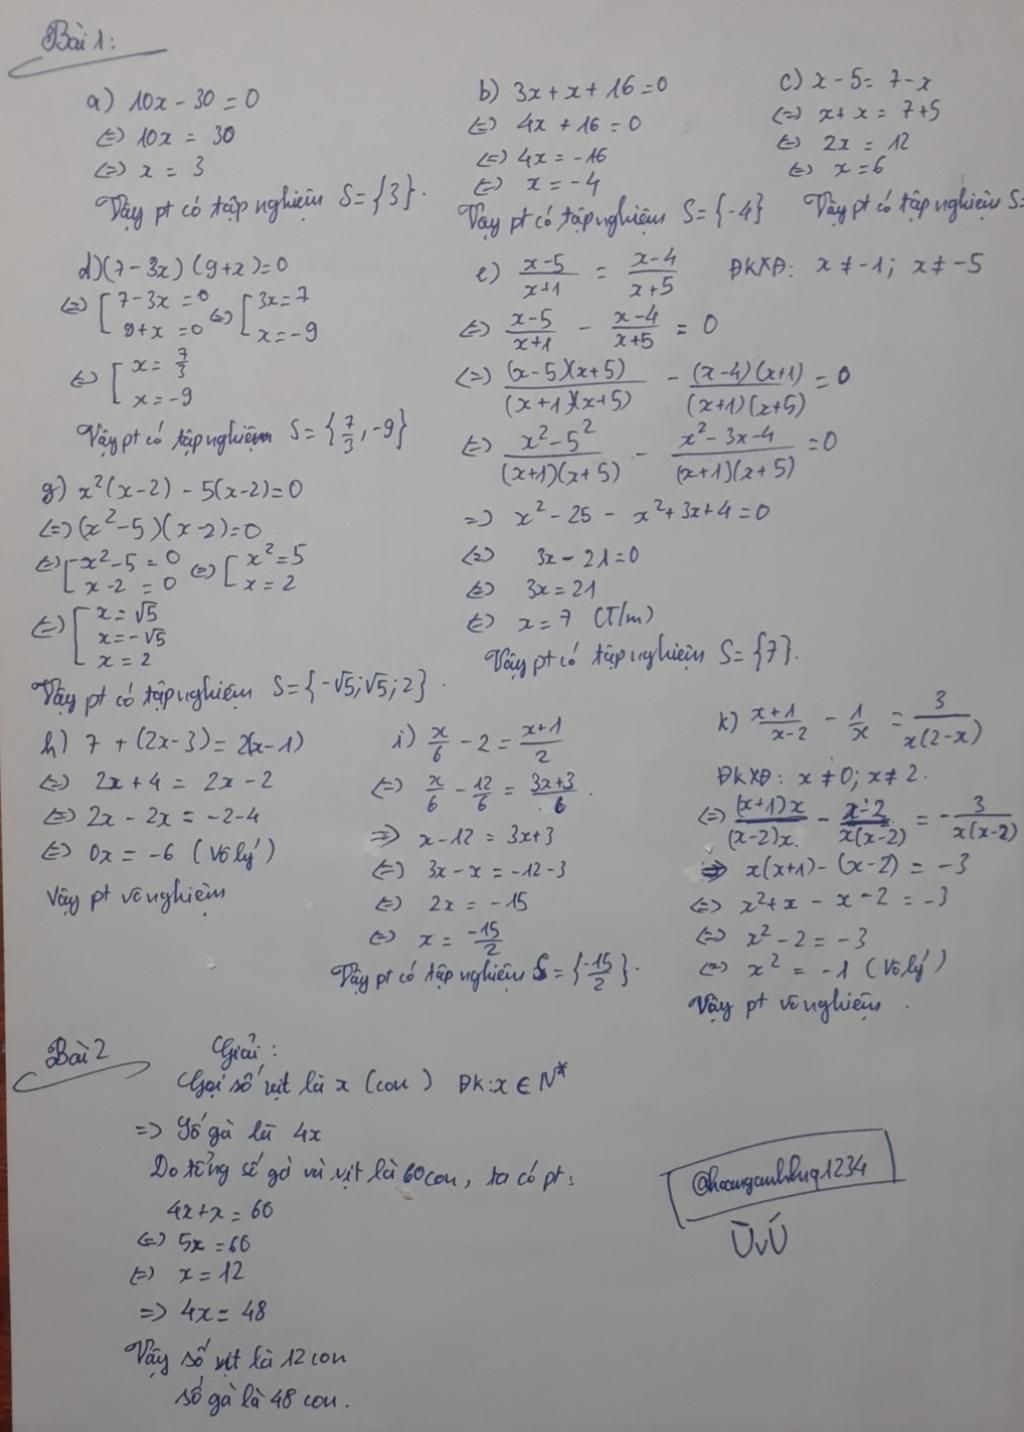 Bài 1:
a) 10x - 30 = 0
(=) 10x = 30
(=) x = 3
Vậy pt có tập nghiệm S = {3}.
b) 3x + x + 16 = 0
(=) 4x + 16 = 0
(=) 4x = -16
(=) x = -4
Vậy pt có tập nghiệm S = {-4}
c) x - 5 = 7 - x
(=) x + x = 7 + 5
(=) 2x = 12
(=) x = 6
Vậy pt có tập nghiệm S =
d) (7 - 3x) (9 + x) = 0
(=) [ 7 - 3x = 0 (=) [ 3x = 7
9 + x = 0 x = -9
(=) [ x = 7/3
x = -9
Vậy pt có tập nghiệm S = {7/3, -9}
e) (x-5)/(x+1) = (x-4)/(x+5) ĐKXĐ: x ≠ -1; x ≠ -5
(=) (x-5)/(x+1) - (x-4)/(x+5) = 0
(=) (x-5)(x+5)/(x+1)(x+5) - (x-4)(x+1)/(x+1)(x+5) = 0
(=) (x² - 5²)/(x+1)(x+5) - (x² - 3x - 4)/(x+1)(x+5) = 0
=> x² - 25 - x² + 3x + 4 = 0
(=) 3x - 21 = 0
(=) 3x = 21
(=) x = 7 (T/m)
Vậy pt có tập nghiệm S = {7}.
g) x²(x-2) - 5(x-2) = 0
(=) (x² - 5)(x - 2) = 0
(=) [ x² - 5 = 0 (=) [ x² = 5
x - 2 = 0 x = 2
(=) [ x = √5
x = -√5
x = 2
Vậy pt có tập nghiệm S = {-√5; √5; 2}.
h) 7 + (2x - 3) = 2(x - 1)
(=) 2x + 4 = 2x - 2
(=) 2x - 2x = -2 - 4
(=) 0x = -6 (Vô lý)
Vậy pt vô nghiệm
i) x/6 - 2 = (x+1)/2
(=) x/6 - 12/6 = (3x+3)/6.
=> x - 12 = 3x + 3
(=) 3x - x = -12 - 3
(=) 2x = -15
(=) x = -15/2
Vậy pt có tập nghiệm S = {-15/2}.
k) (x+1)/(x-2) - 1/x = 3/x(2-x)
ĐKXĐ: x ≠ 0; x ≠ 2.
(=) (x+1)x/(x-2)x - (x-2)/x(x-2) = -3/x(x-2)
=> x(x+1) - (x-2) = -3
(=) x² + x - x - 2 = -3
(=) x² - 2 = -3
(=) x² = -1 (Vô lý)
Vậy pt vô nghiệm.
Bài 2
Giải:
Gọi số vịt là x (con) ĐK: x ∈ N*
=> Số gà là 4x
Do tổng số gà và vịt là 60 con, ta có pt:
4x + x = 60
(=) 5x = 60
(=) x = 12
=> 4x = 48
Vậy số vịt là 12 con
số gà là 48 con.
ÙvÚ